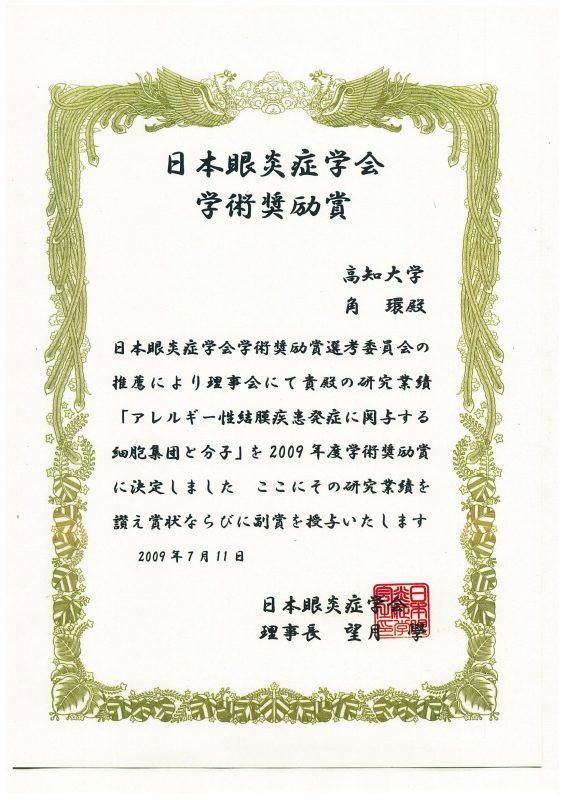 日本眼炎症学会
学術奨励賞
高知大学
角　環殿
日本眼炎症学会学術奨励賞選考委員会の
推薦により理事会にて貴殿の研究業績
「アレルギー性結膜疾患発症に関与する
細胞集団と分子」を2009年度学術奨励賞
に決定しました　ここにその研究業績を
讃え賞状ならびに副賞を授与いたします
2009年7月11日
日本眼炎症学会
理事長　望月　學